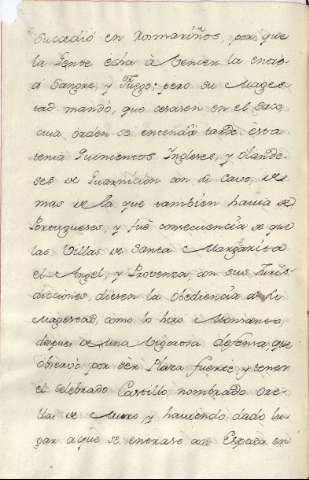 Sucedió en Romariños, pues que
la Gente echa à bencer la entró
á Sangre, y Fuego; pero su Mages-
tad mandó, que cesasen en el Sa
cuia orden se entendió tarde: esta
tenia Quinientos Ingleses, y olande
ses de Guarnicion con su Cavo, de
mas de la que tambien havia de
Portugueses, y fue consecuencia de que
las Villas de Santa Margarita
el Angel, y Provenza, con sus Juris-
dicciones, diesen la obediencia a su
Magestad, como lo hizo Monsanto,
despues de una Vigorosa defensa, que
obserbó por ser Plaza fuerte, y tener
el celebrado Castillo nombrado
de Muro y haviendo dado lu
gar a que se entrase con Espada en